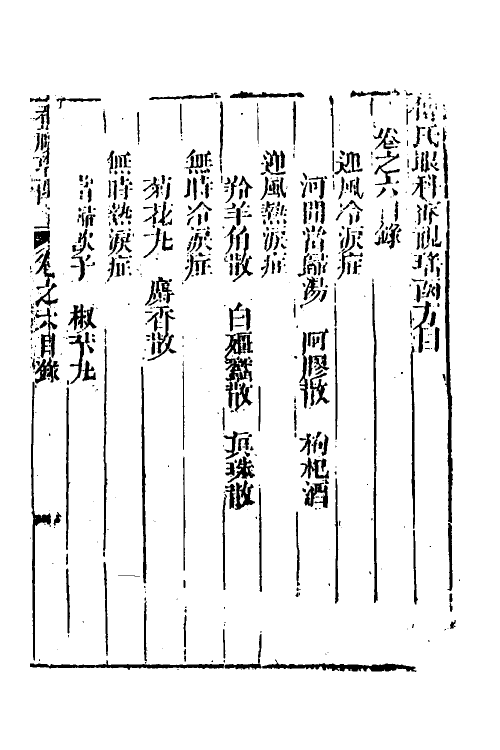 傅氏眼科審視瑤函方目
卷之六目錄
迎風冷淚症
河間當歸湯　阿膠散　枸杞酒
迎風熱淚症
羚羊角散　白殭蠶散　真珠散
無時冷淚症
菊花丸　麝香散
無時熱淚症
當歸飲子　椒苄丸
卷之六目錄